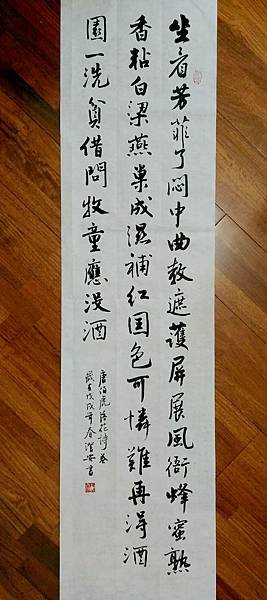 坐看芳菲了悶中曲教遮護屏展風衙蜂蜜熟
香粘白梁燕巢成濕補紅国色可憐難再得酒
園一洗貧借問牧童應没酒
唐伯虎落花詩卷
歲在戊戌年春澄安書